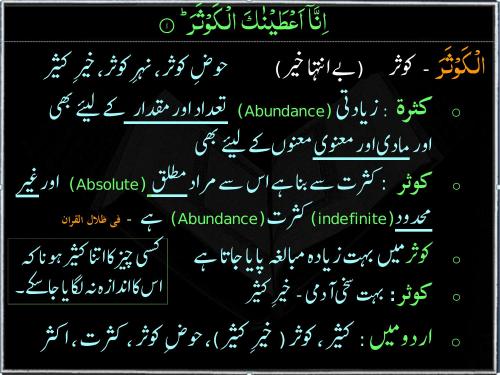 اِنَّاۤ اَعْطَيْنٰكَ الْكَوْثَرَؕ ۝۱
الْكَوْثَرَ - کوثر (بے انتہا خیر) حوضِ کوثر، نہرِ کوثر، خیرِ کثیر
كثرة : زیادتی (Abundance) تعداد اور مقدار کے لیئے بھی
اور مادی اور معنوی معنوں کے لیئے بھی
کوثر : کثرت سے بنا ہے اس سے مراد مطلق (Absolute) اور غیر
محدود (indefinite) کثرت (Abundance) ہے - فی ظلال القران
کوثر میں بہت زیادہ مبالغہ پایا جاتا ہے
کسی چیز کا اتنا کثیر ہونا کہ
اس کا اندازہ نہ لگایا جا سکے۔
کوثر: بہت سخی آدمی - خیرِ کثیر
اردو میں : کثیر، کوثر ( خیرِ کثیر)، حوضِ کوثر، کثرت، اکثر